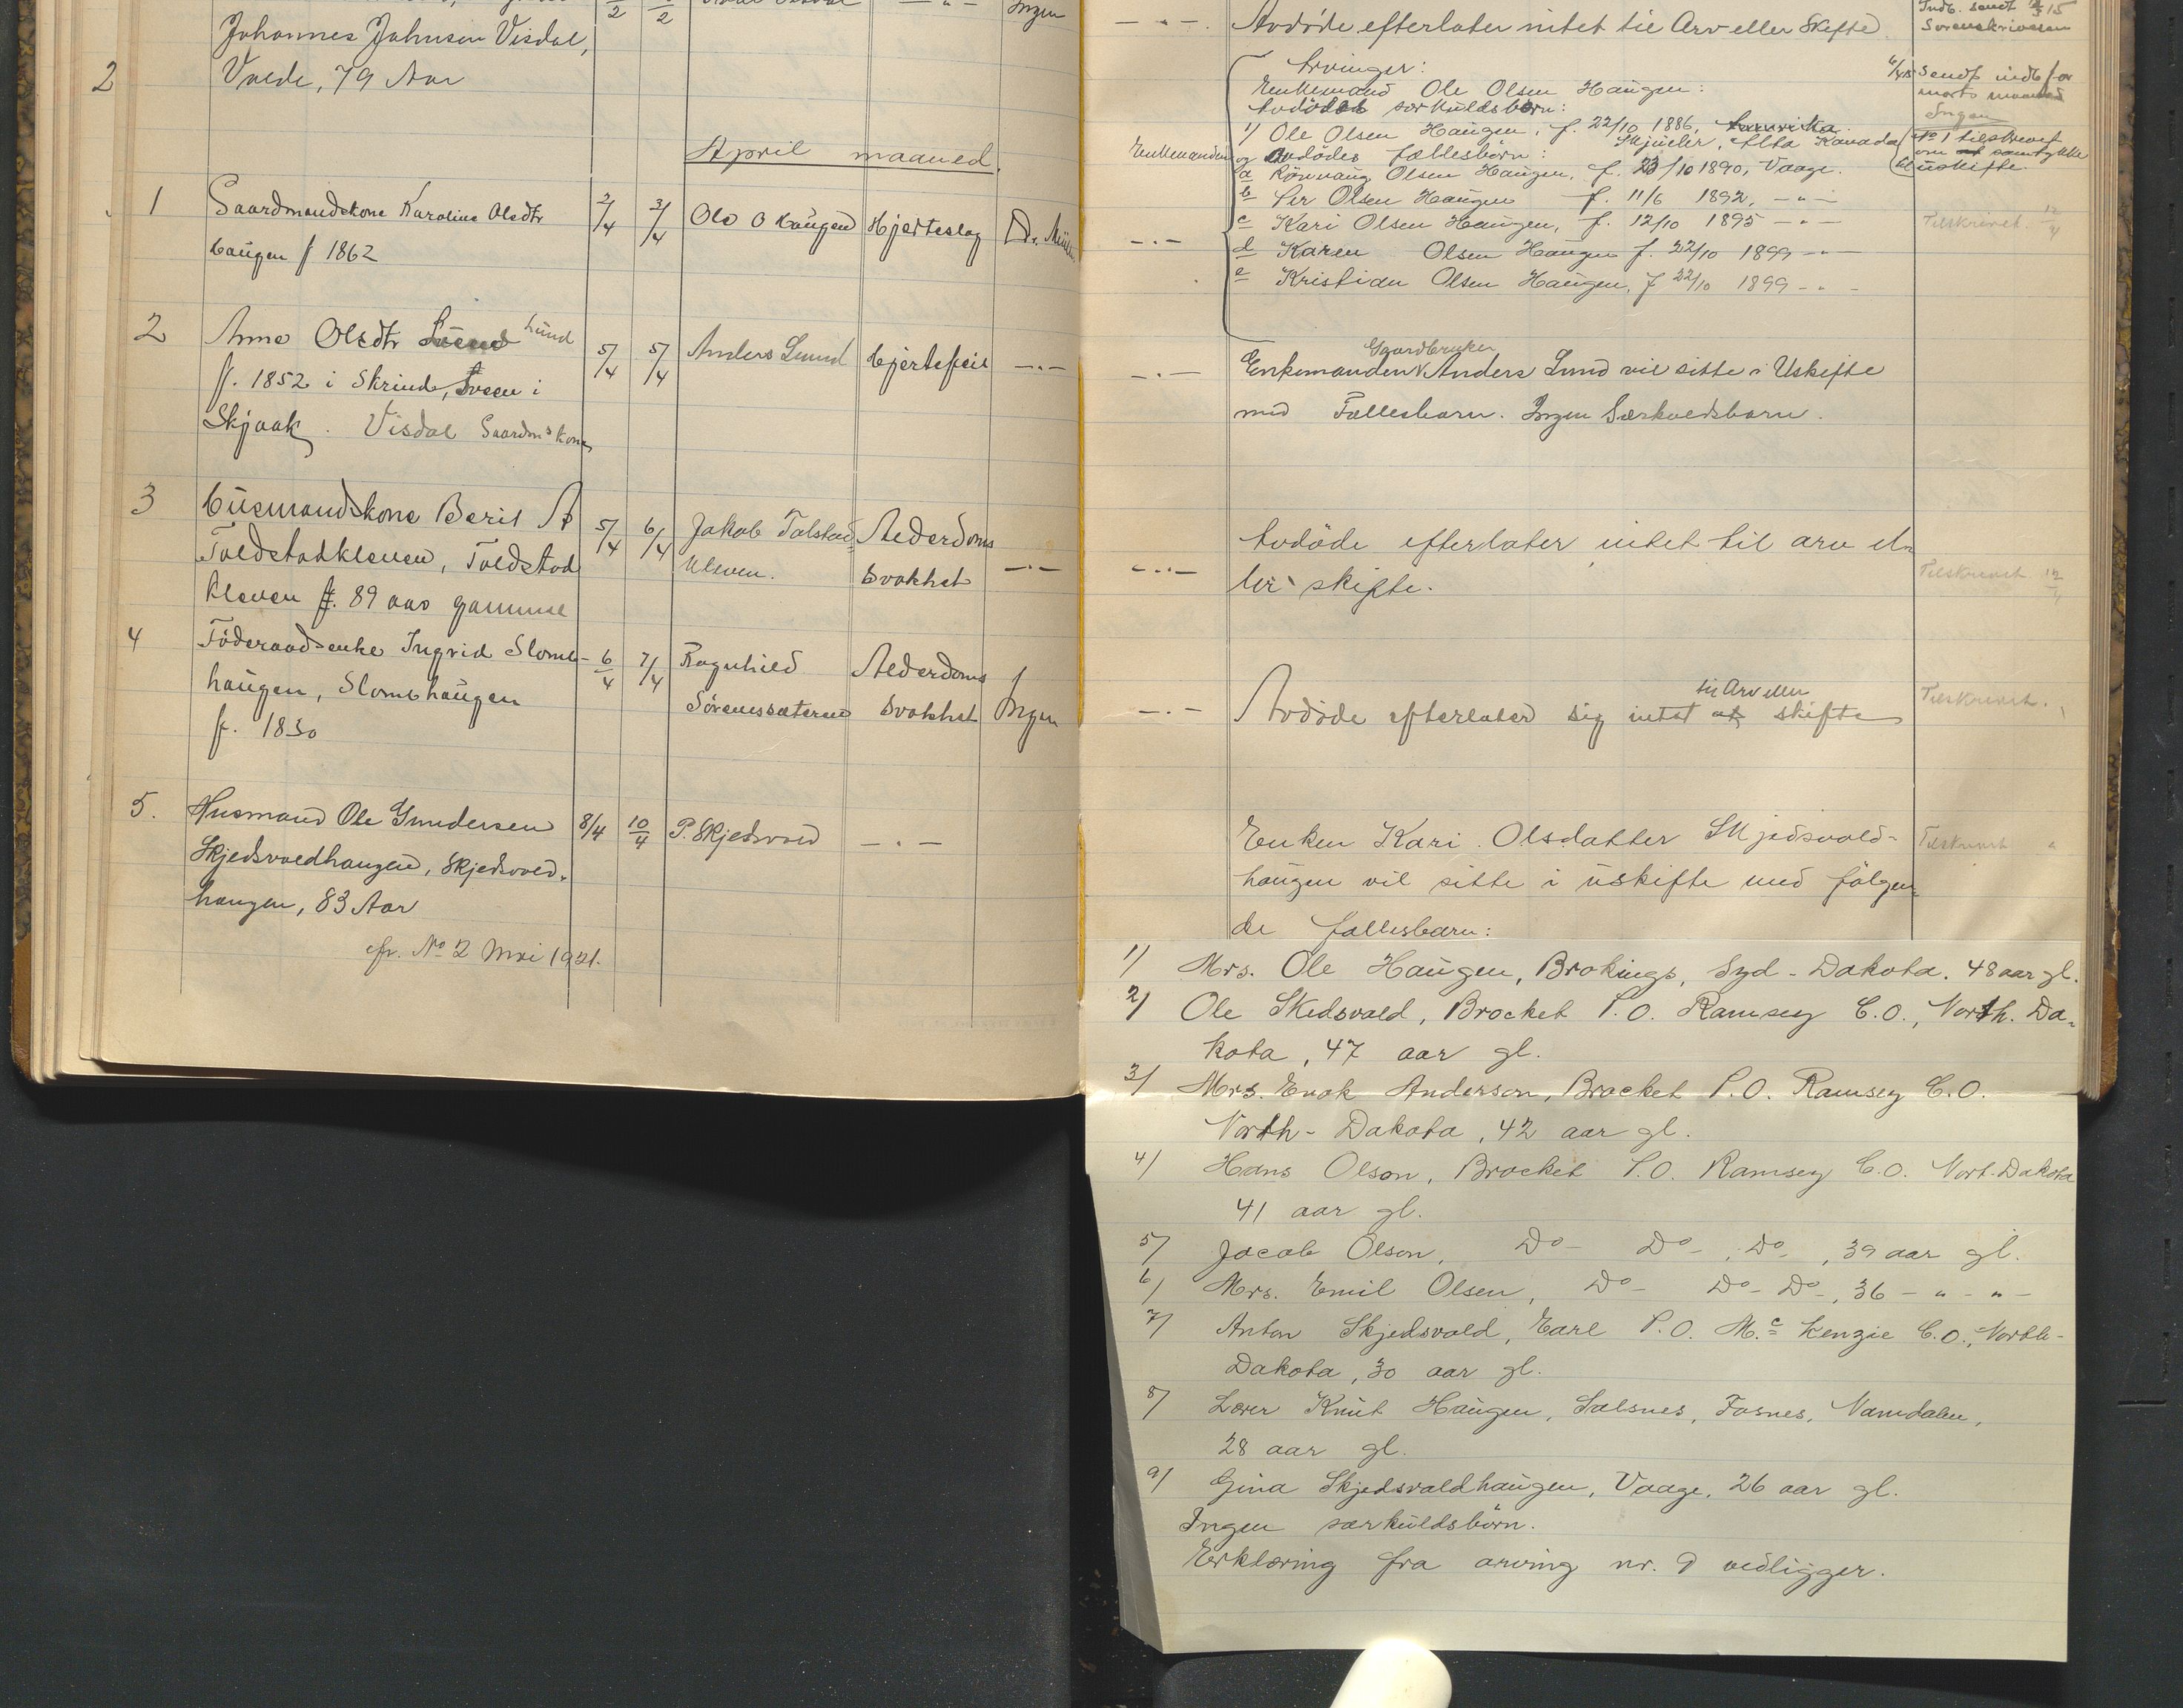 Johannes Johnsen Visdal,
2
Volde, 79 Aar
April maaned.
1
Gaardmandskone Karoline Olsdtr
2/4
3/4
Ole O Haugen
Hjerteslag
Dr.
Haugen f 1862
2
Anne Olsdtr Lund
f. 1852 i Skrinde, i
5/4
5/4
Anders Lund
Hjertefeil
—"—
Skjaak. Visdal Gaardmskone
3
Husmandskone Berit
Toldstadkleven, Toldstad
5/4
6/4
Jakob Tolstad
Kleven.
Alderdoms
Svakhet
—"—
Kleven f. 89 aar gammel
4
Föderaadsenke Ingrid Slomb-
haugen, Slombhaugen
f. 1830
6/4
7/4
Ragnhild
Sörenssæteren
Alderdoms
Svakhet
Ingen
5.
Husmand Ole Gundersen
8/4
10/4
P. Skjedsvold
—"—
Skjedsvoldhaugen, Skjedsvold-
haugen, 83 Aar
cfr. No 2 Mai 1921.
—"—. Avdöde efterlater intet til Arv eller Skifte.
Indb. sendt
Sorenskriveren
Arvinger:
Enkemand Ole Olsen Haugen:
Avdödes særkuldsbörn:
1) Ole Olsen Haugen, f. 22/10 1886,
Alta Kanada
Enkemanden og avdödes fællesbörn:
a Rönnaug Olsen Haugen, f. 23/10 1890, Vaage.
b Per Olsen Haugen f. 11/6 1892, —"—
c Kari Olsen Haugen, f. 12/10 1895 —"—
d Karen Olsen Haugen f. 22/10 1899 —"—
e Kristian Olsen Haugen, f 22/10 1899 —"—
sendt indb for
marts maaned
Ingen
No 1 tilskrevet
om samtykke
til uskifte.
Tilskrevet 12/4
—"—
Gaardbruker
Enkemanden Anders Lund vil sitte i Uskifte
med Fællesbarn. Ingen Særkuldsbarn.
—"—
Avdöde efterlater intet til arv el-
ler skifte.
Tilskrevet 12/4
—"—
til Arv eller
Avdöde efterlater sig intet at skifte
Tilskrevet.
Enken Kari Olsdatter Skjedsvold-
haugen vil sitte i uskifte med fölgen-
de fællesbarn:
Tilskrevet "
1) Mrs. Ole Haugen, Brokings, Syd-Dakota. 48 aar gl.
2) Ole Skedsvold, Brocket P.O. Ramsey C.O., North. Da-
kota, 47 aar gl.
3) Mrs. Enok Anderson, Brocket P.O. Ramsey C.O.
North-Dakota, 42 aar gl.
4) Hans Olson, Brocket P.O. Ramsey C.O. Nort-Dakota
41 aar gl.
5) Jacob Olson, Do- Do-, Do-, 39 aar gl.
6) Mrs. Emil Olsen, Do- Do- Do-, 36 - " - " -
7) Anton Skjedsvold, Earl P.O. Mc Kenzie C.O., North-
Dakota, 30 aar gl.
8) Lærer Knut Haugen, Salsnes, Fosnes, Namdalen,
28 aar gl.
9) Gina Skjedsvoldhaugen, Vaage, 26 aar gl.
Ingen særkuldsbörn.
Erklæring fra arving nr. 9 vedligger.